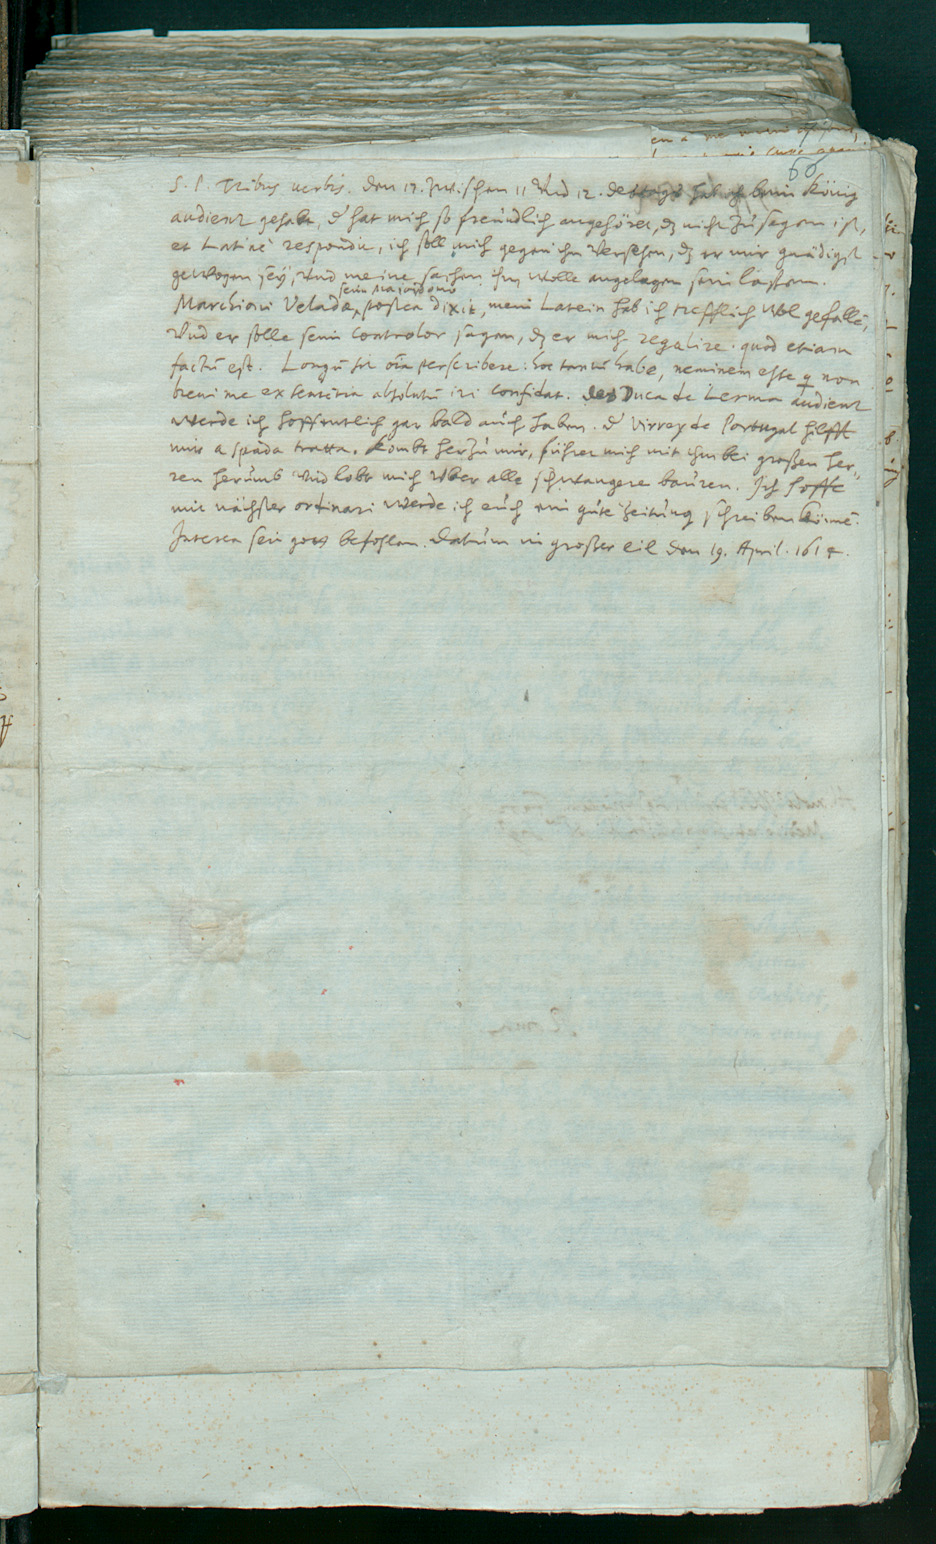 60
S. P. Tribus verbis. den 17. zwischen 11 und 12. deß tags hab ich beim König
audientz gehabt, d' hat mich so freundlich angehöret, dz nicht zu sagen ist,
et Latinè respondit, ich soll mich gegen ihm versehen, dz er mir gnädigst
gewogen sey, und meine sachen ihm wolle angelegen sein laßen.
sein Majordomo
Marchioni Velada, postea dixit, mein Latein hab ich trefflich wol gefallē,
und er solle seim Controlor sagen, dz er mich regalire. quod etiam
factū est. Longū sit oīa perscribere: hoc tantū habe, neminem esse q non
brevi me ex sententia absolutū iri confidat. des Duca de Lerma audientz
werde ich hoffentlich gar bald auch haben. d' Virrey de Portugal hilfft
mir a spada tratta. Kombt her zu mir, führet mich mit ihm bei großen her-
ren herumb und lobt mich über alle schwangere bauren. Ich hoffe
mit nächster ordinari werde ich euch ein gute zeitung schreiben könnē.
Interea sei gott befohlen. Datum in großer eil den 19. April. 1614.